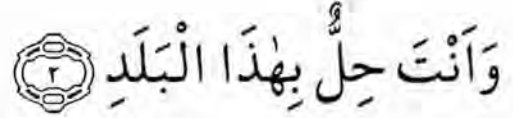 وَاَنْتَ حِلٌّۢ بِهٰذَا الْبَلَدِ ﴿٢﴾